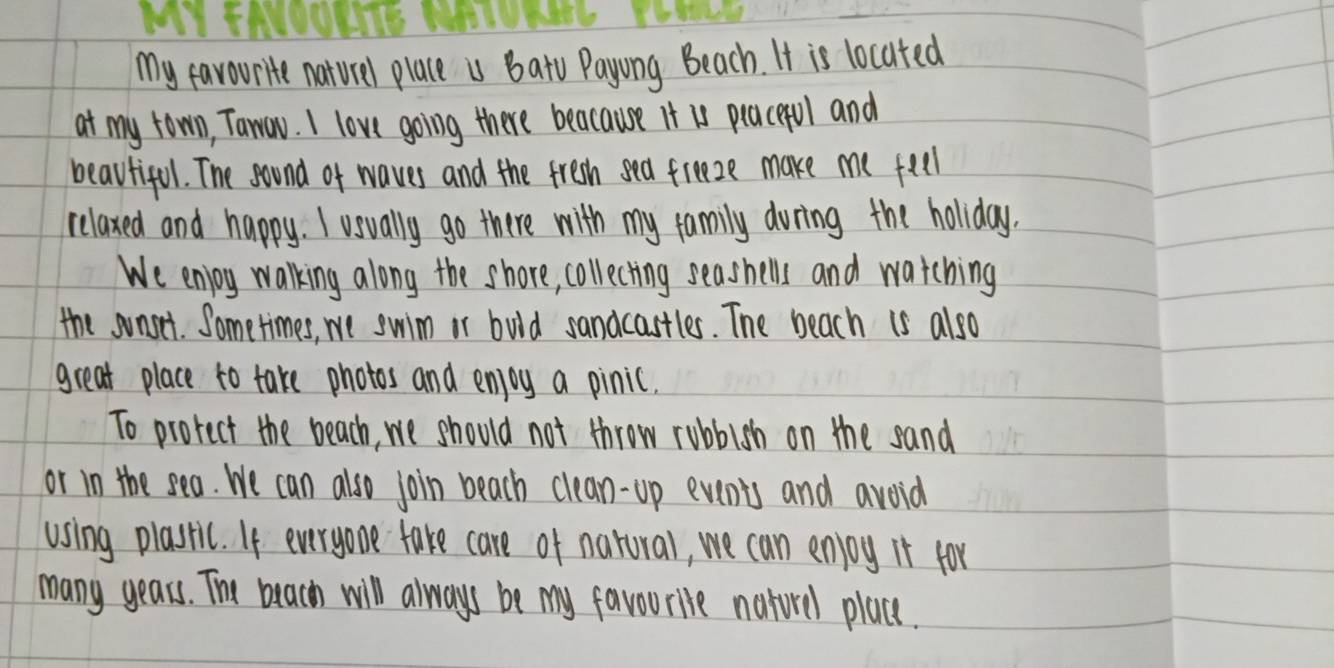 MY FAVOURITE NATURAL PLACE
My favourite naturel place is Batu Payung Beach. It is located
at my town, Tawau. I love going there beacause it is peaceful and
beautiful. The sound of waves and the fresh sea freeze make me feel
relaxed and happy. I usually go there with my family during the holiday.
We enjoy walking along the shore, collecting seashells and watching
the sunset. Sometimes, we swim or build sandcastles. The beach is also
great place to take photos and enjoy a pinic.
To protect the beach, we should not throw rubbish on the sand
or in the sea. We can also join beach clean-up events and avoid
using plastic. If everyone take care of natural, we can enjoy it for
many years. The beach will always be my favourite naturel place.